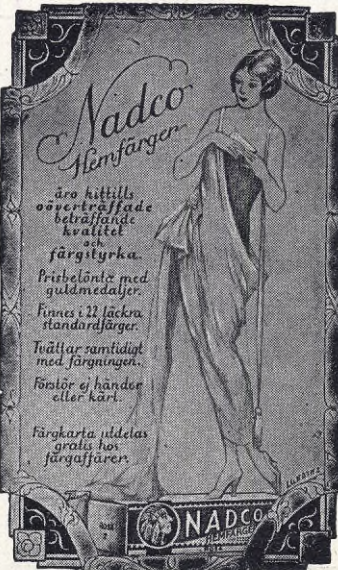 Nadco
Hemfärger
äro hittills
oöverträffade
beträffande
kvalitet
och
färgstyrka.
Prisbelönta med
guldmedaljer.
Finnes i 22 läckra
standardfärger.
Tvättar samtidigt
med färgningen.
Förstör ej händer
eller kärl.
Färgkarta utdelas
gratis hos
färgaffärer.
NADCO
HEMFÄRGER